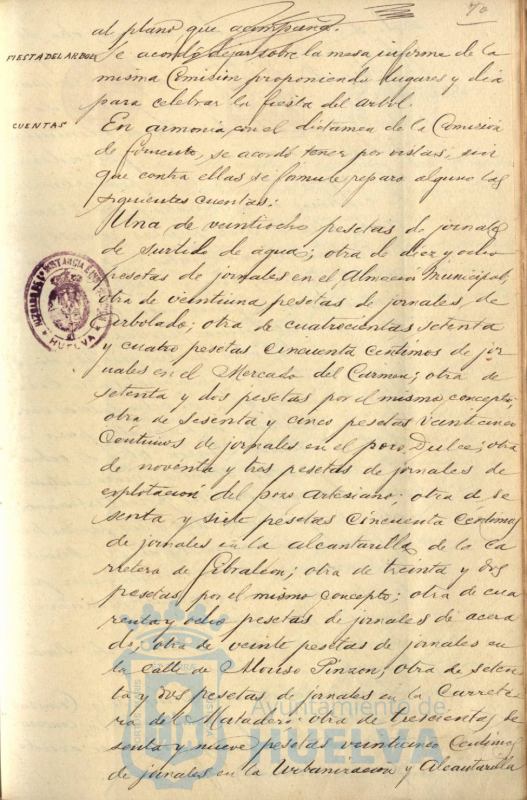 70
al plano que acompaña.
FIESTA DEL ARBOL
Se acordó dejar sobre la mesa informe de la
misma Comisión proponiendo lugares y dia
para celebrar la fiesta del arbol.
CUENTAS
En armonia con el dictamen de la Comisión
de fomento, se acordó tener por vistas, sin
que contra ellas se formule reparo alguno las
siguientes cuentas:
Una de veintiocho pesetas de jornales
de surtido de agua; otra de diez y ocho
pesetas de jornales en el Almacen Municipal;
otra de veintiuna pesetas de jornales de
arbolado; otra de cuatrocientas setenta
y cuatro pesetas cincuenta centimos de jor
nales en el Mercado del Carmen; otra de
setenta y dos pesetas por el mismo concepto;
otra de sesenta y cinco pesetas veinticinco
centimos de jornales en el pozo Dulce; otra
de noventa y tres pesetas de jornales de
explotación del pozo artesiano; otra de se
senta y siete pesetas cincuenta centimos
de jornales en la alcantarilla de la ca
rretera de Gibraleon; otra de treinta y dos
pesetas por el mismo concepto; otra de cua
renta y ocho pesetas de jornales de acera
do; otra de veinte pesetas de jornales en
la calle de Alonso Pinzon; otra de seten
ta y dos pesetas de jornales en la Carrete
ra de Matadero; otra de trescientas se
senta y nueve pesetas veinticinco centimos
de jornales en la Urbanizacion y Alcantarilla
HUELVA
Ayuntamiento de
HUELVA